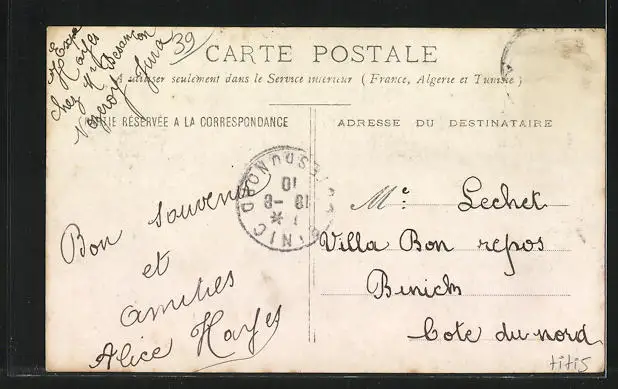 Exp
Hayes
chez Mr Besançon
Nozeroy Jura
39
CARTE POSTALE
A utiliser seulement dans le Service intérieur ( France, Algérie et Tunisie )
PARTIE RÉSERVÉE A LA CORRESPONDANCE
ADRESSE DU DESTINATAIRE
BINIC
CÔTES DU NORD
1 *
18 -8
10
Bon souvenir
et
amitiés
Alice Hayes
Me Lechet
Villa Bon repos
Binich
Cote du nord
titis